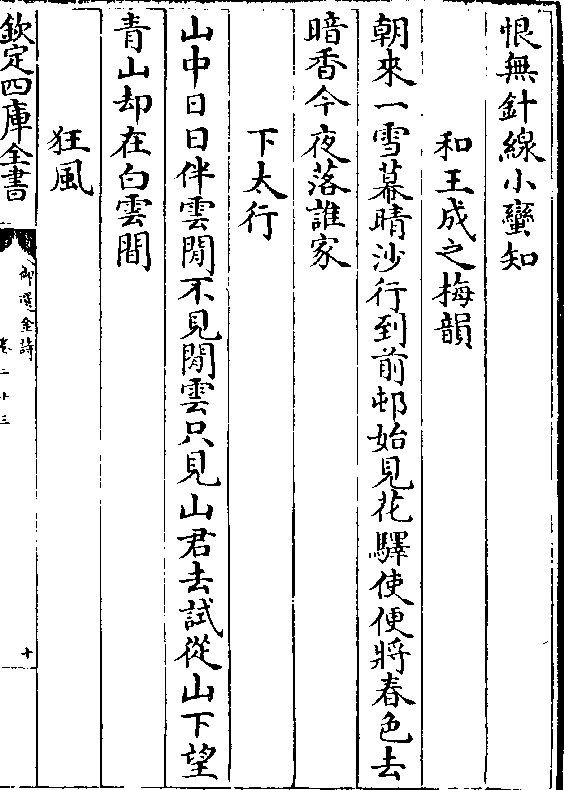 恨無針線小蠻知
和王成之梅韻
朝來一雪幕晴沙行到前邨始見花驛使便將春色去
暗香今夜落誰家
下太行
山中日日伴雲閒不見閒雲只見山君去試從山下望
青山却在白雲間
狂風
欽定四庫全書
御選金詩
卷二十三
十